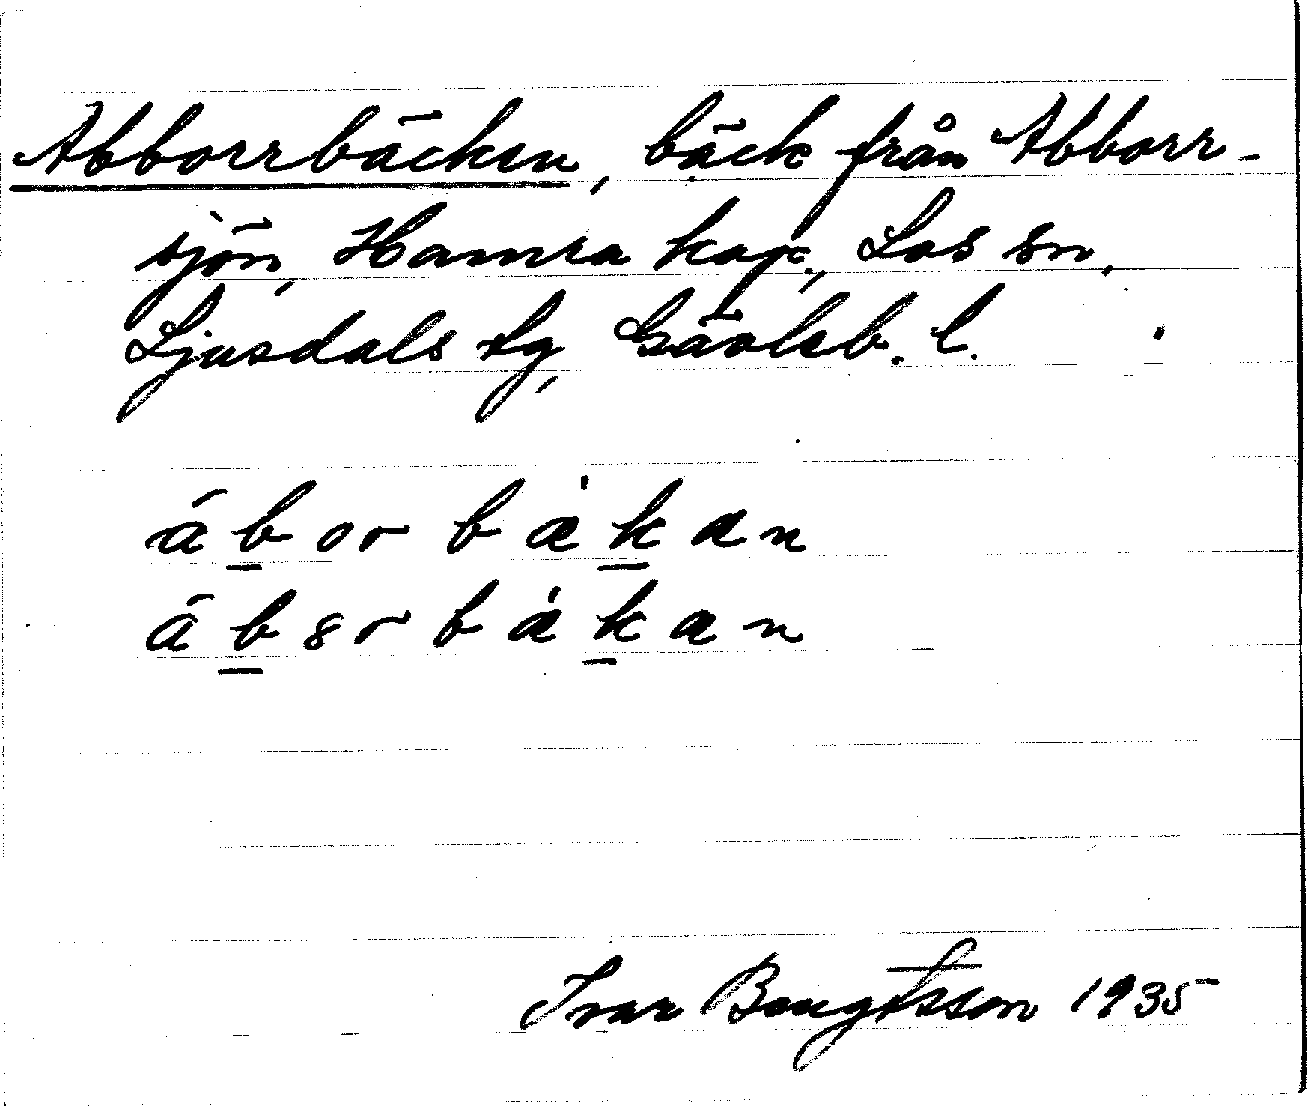 Abborrbäcken, bäck från Abborr-
sjön, Hamra kap., Los sn,
Ljusdals tg, Gävleb. l.
ábor bækan
Ivar Bengtsson 1935